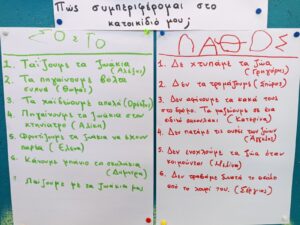 Πώς συμπεριφέρομαι στο
κατοικίδιό μου;
ΣΩΣΤΟ
1. Ταΐζουμε τα ζωάκια
(Αλέξης)
2. Τα πηγαίνουμε βόλτα
συχνά (Θωμάς)
3. Τα χαϊδεύουμε απαλά
4. Πηγαίνουμε τα ζωάκια στον
κτηνίατρο (Αλίκη)
5. Φροντίζουμε τα ζωάκια να έχουν
παρέα (Έλενα)
6. Κάνουμε μπάνιο τα σκυλάκια
(Δήμητρα)
7. Παίζουμε με τα ζωάκια μας
ΛΑΘΟΣ
1. Δε χτυπάμε τα ζώα
(Γρηγόρης)
2. Δεν τα τρομάζουμε (Σπύρος)
3. Δεν αφήνουμε τα κακά τους
στο δρόμο. Τα μαζεύουμε σε ένα
ειδικό σακουλάκι (Κατερίνα)
4. Δεν πατάμε τις ουρές των ζώων
(Άγγελος)
5. Δεν ενοχλούμε τα ζώα όταν
κοιμούνται (Μελίνα)
6. Δεν τραβάμε δυνατά το σκύλο
από το λουρί του. (Στέργιος)